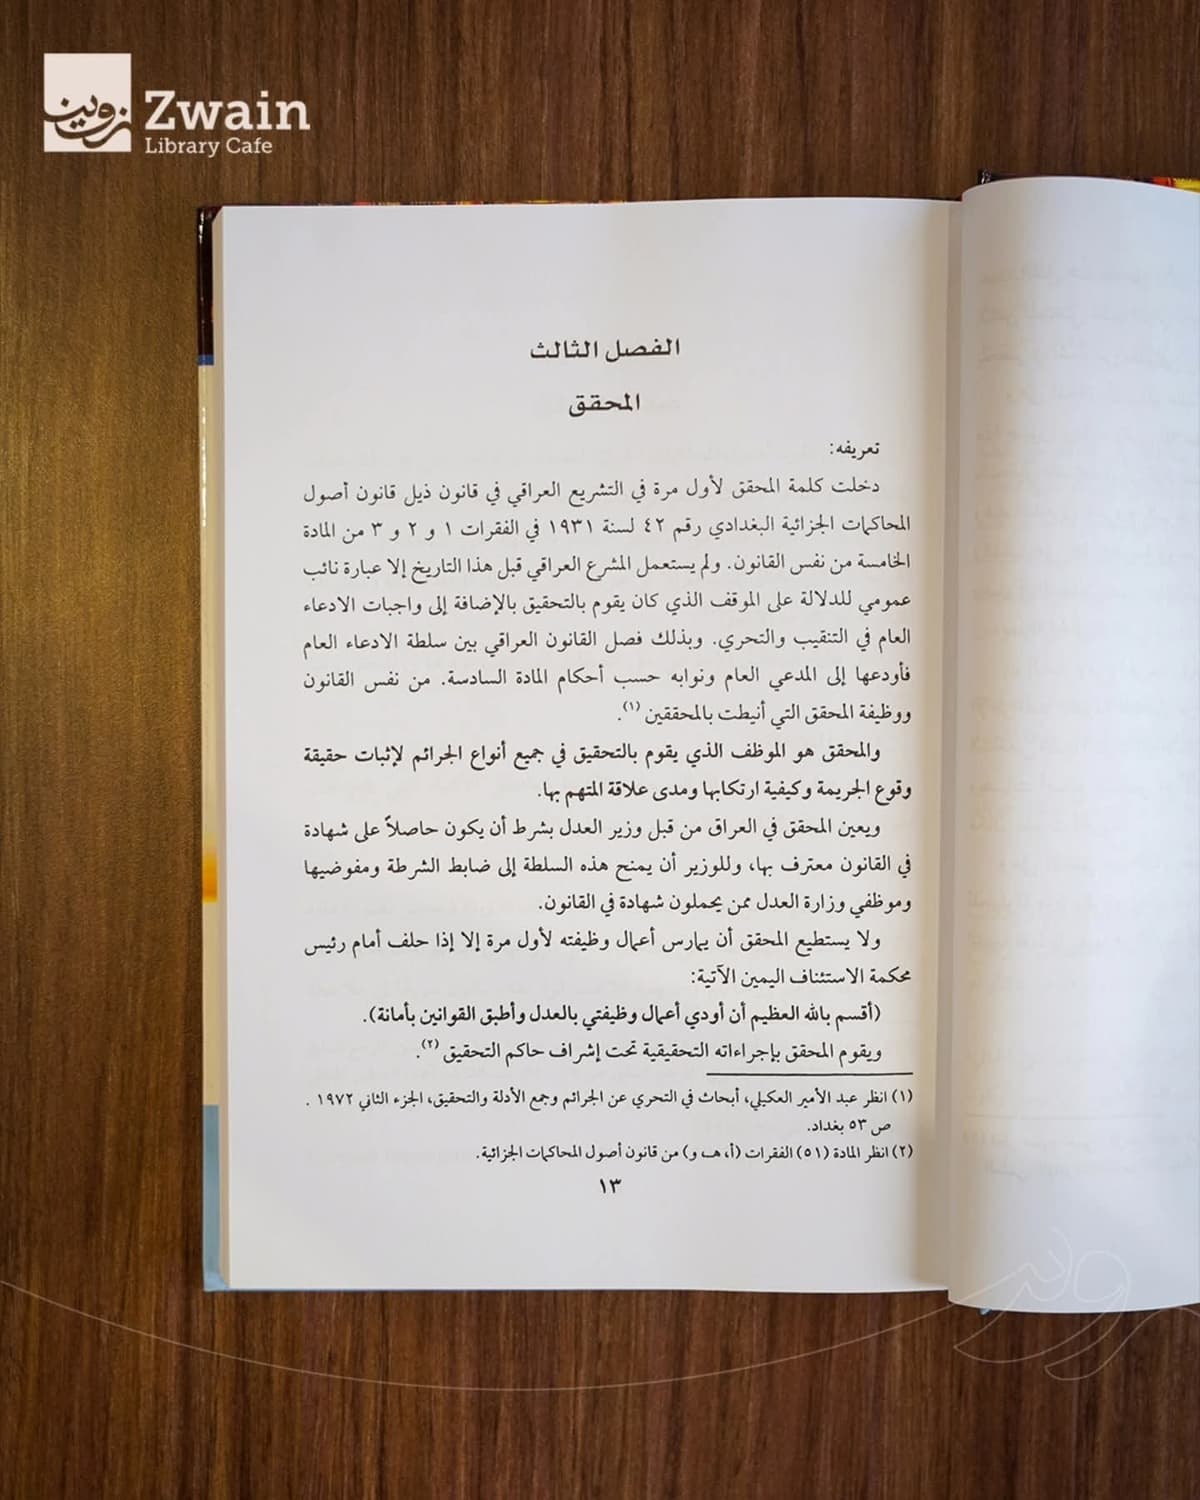 زوين
Zwain
Library Cafe
الفصل الثالث
المحقق
تعريفه:
دخلت كلمة المحقق لأول مرة في التشريع العراقي في قانون ذيل قانون أصول
المحاكمات الجزائية البغدادي رقم ٤٢ لسنة ١٩٣١ في الفقرات ١ و ٢ و ٣ من المادة
الخامسة من نفس القانون. ولم يستعمل المشرع العراقي قبل هذا التاريخ إلا عبارة نائب
عمومي للدلالة على الموقف الذي كان يقوم بالتحقيق بالإضافة إلى واجبات الادعاء
العام في التنقيب والتحري. وبذلك فصل القانون العراقي بين سلطة الادعاء العام
فأودعها إلى المدعي العام ونوابه حسب أحكام المادة السادسة. من نفس القانون
ووظيفة المحقق التي أنيطت بالمحققين (١).
والمحقق هو الموظف الذي يقوم بالتحقيق في جميع أنواع الجرائم لإثبات حقيقة
وقوع الجريمة وكيفية ارتكابها ومدى علاقة المتهم بها.
ويعين المحقق في العراق من قبل وزير العدل بشرط أن يكون حاصلاً على شهادة
في القانون معترف بها، وللوزير أن يمنح هذه السلطة إلى ضابط الشرطة ومفوضيها
وموظفي وزارة العدل ممن يحملون شهادة في القانون.
ولا يستطيع المحقق أن يمارس أعمال وظيفته لأول مرة إلا إذا حلف أمام رئيس
محكمة الاستئناف اليمين الآتية:
(أقسم بالله العظيم أن أودي أعمال وظيفتي بالعدل وأطبق القوانين بأمانة).
ويقوم المحقق بإجراءاته التحقيقية تحت إشراف حاكم التحقيق (٢).
(١) انظر عبد الأمير العكيلي، أبحاث في التحري عن الجرائم وجمع الأدلة والتحقيق، الجزء الثاني ١٩٧٢ .
ص ٥٣ بغداد.
(٢) انظر المادة (٥١) الفقرات (أ، هـ، و) من قانون أصول المحاكمات الجزائية.
١٣